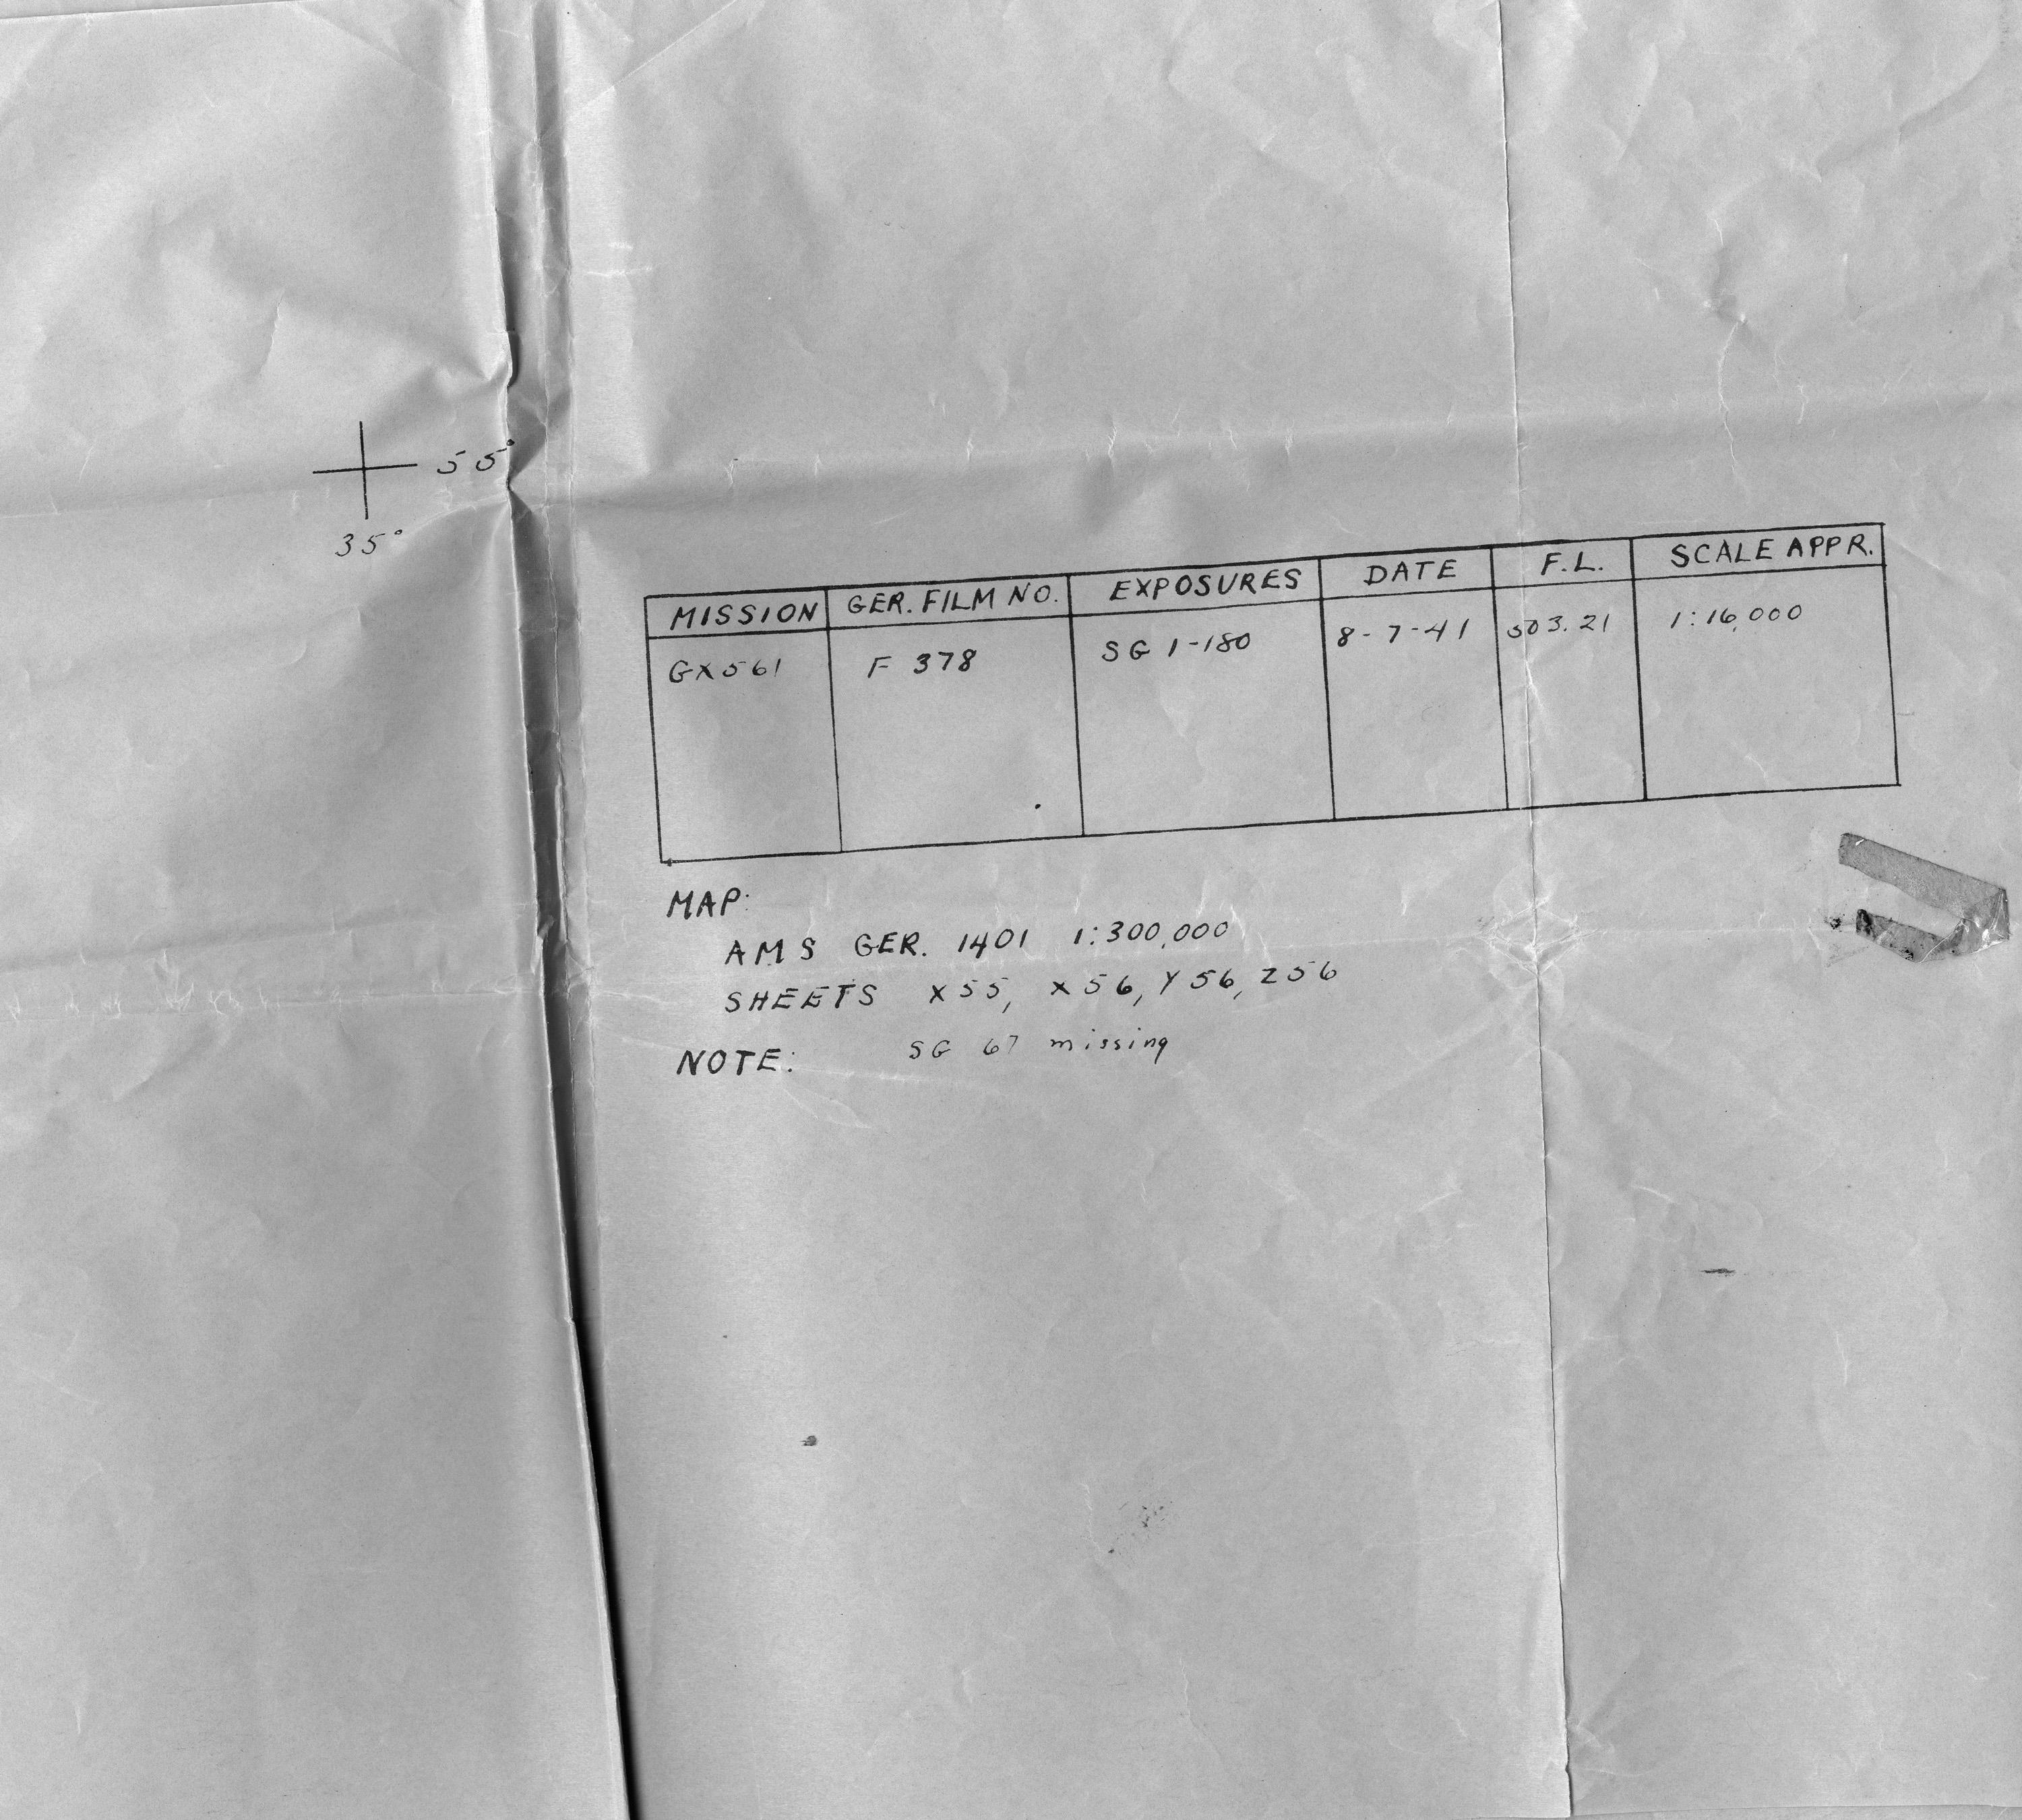 55°
35°
MISSION GER. FILM NO. EXPOSURES DATE F.L. SCALE APPR.
GX561 F 378 SG 1-180 8-7-41 503.21 1:16,000
MAP:
AMS GER. 1401 1:300,000
SHEETS X55, X56, Y56, Z56
NOTE: SG 67 missing